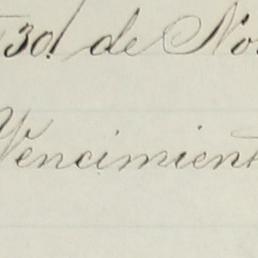 30 de No
Vencimient